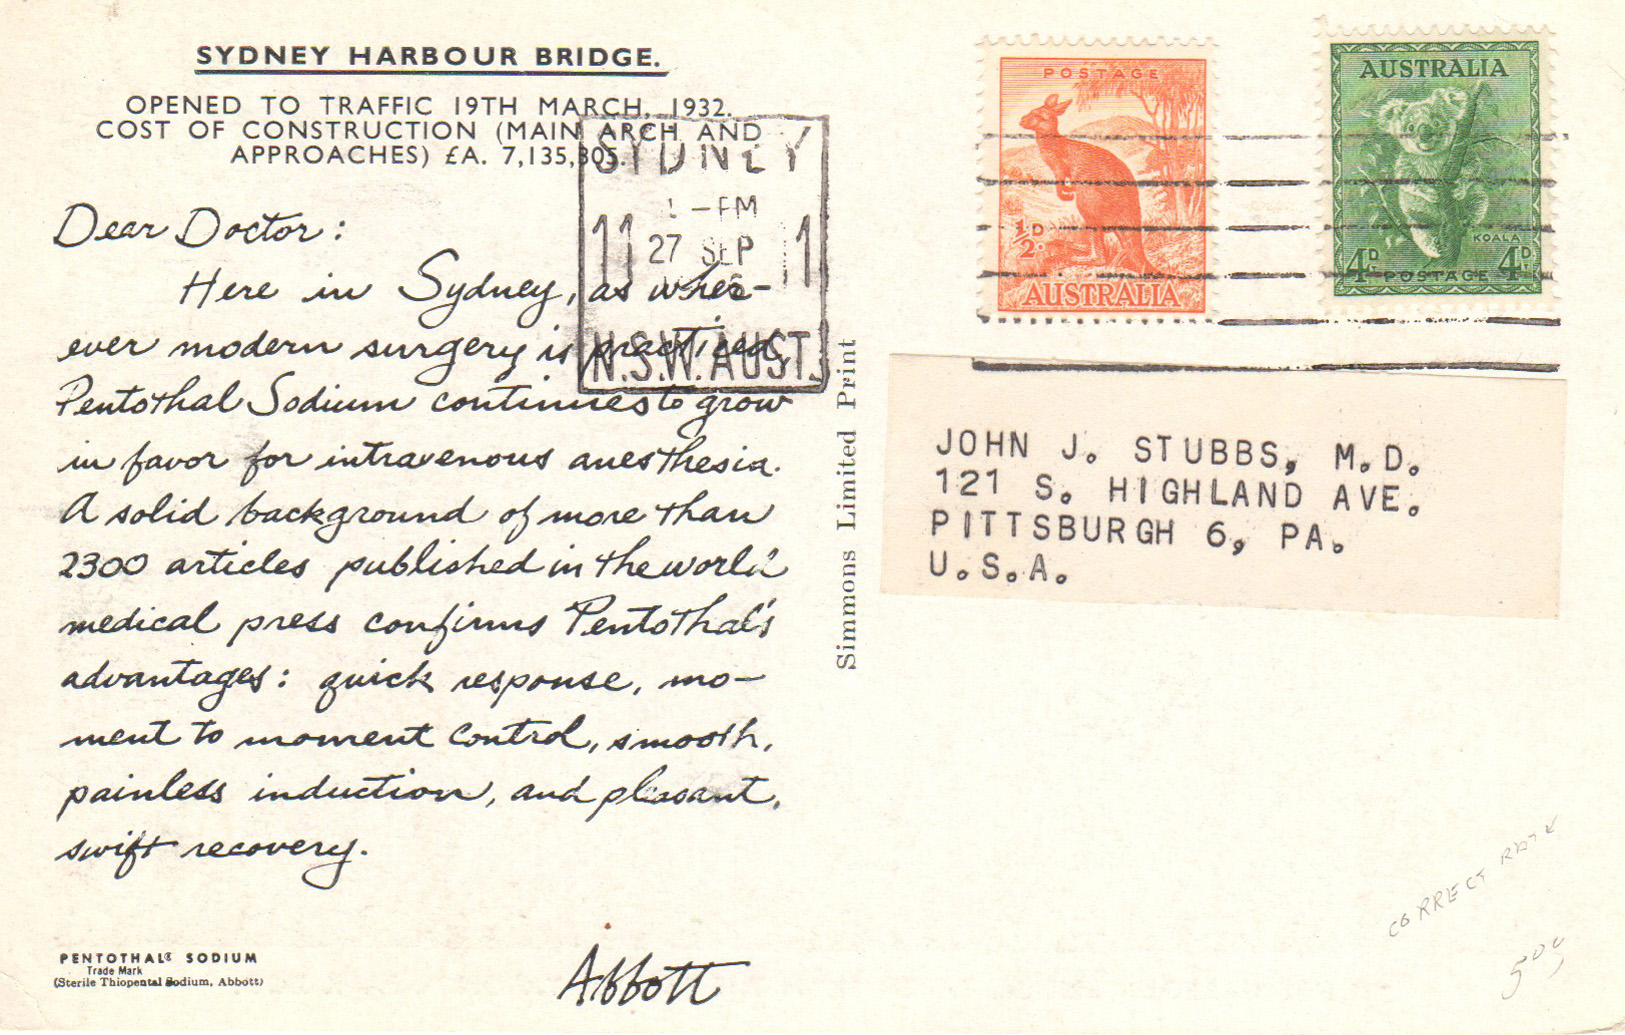 SYDNEY HARBOUR BRIDGE.
OPENED TO TRAFFIC 19TH MARCH, 1932.
COST OF CONSTRUCTION (MAIN ARCH AND
APPROACHES) £A. 7,135,805.
Dear Doctor:
Here in Sydney, as wher-
ever modern surgery is practiced,
Pentothal Sodium continues to grow
in favor for intravenous anesthesia.
A solid background of more than
2300 articles published in the world's
medical press confirms Pentothal's
advantages: quick response, mo-
ment to moment control, smooth,
painless induction, and pleasant,
swift recovery.
Abbott
PENTOTHAL® SODIUM
Trade Mark
(Sterile Thiopental Sodium, Abbott)
Simmons Limited Print
SYDNEY
-PM
11 27 SEP 11
N.S.W. AUST.
POSTAGE
½D.
AUSTRALIA
AUSTRALIA
KOALA
4D. POSTAGE 4D.
JOHN J. STUBBS, M.D.
121 S. HIGHLAND AVE.
PITTSBURGH 6, PA.
U.S.A.
CORRECT RATE